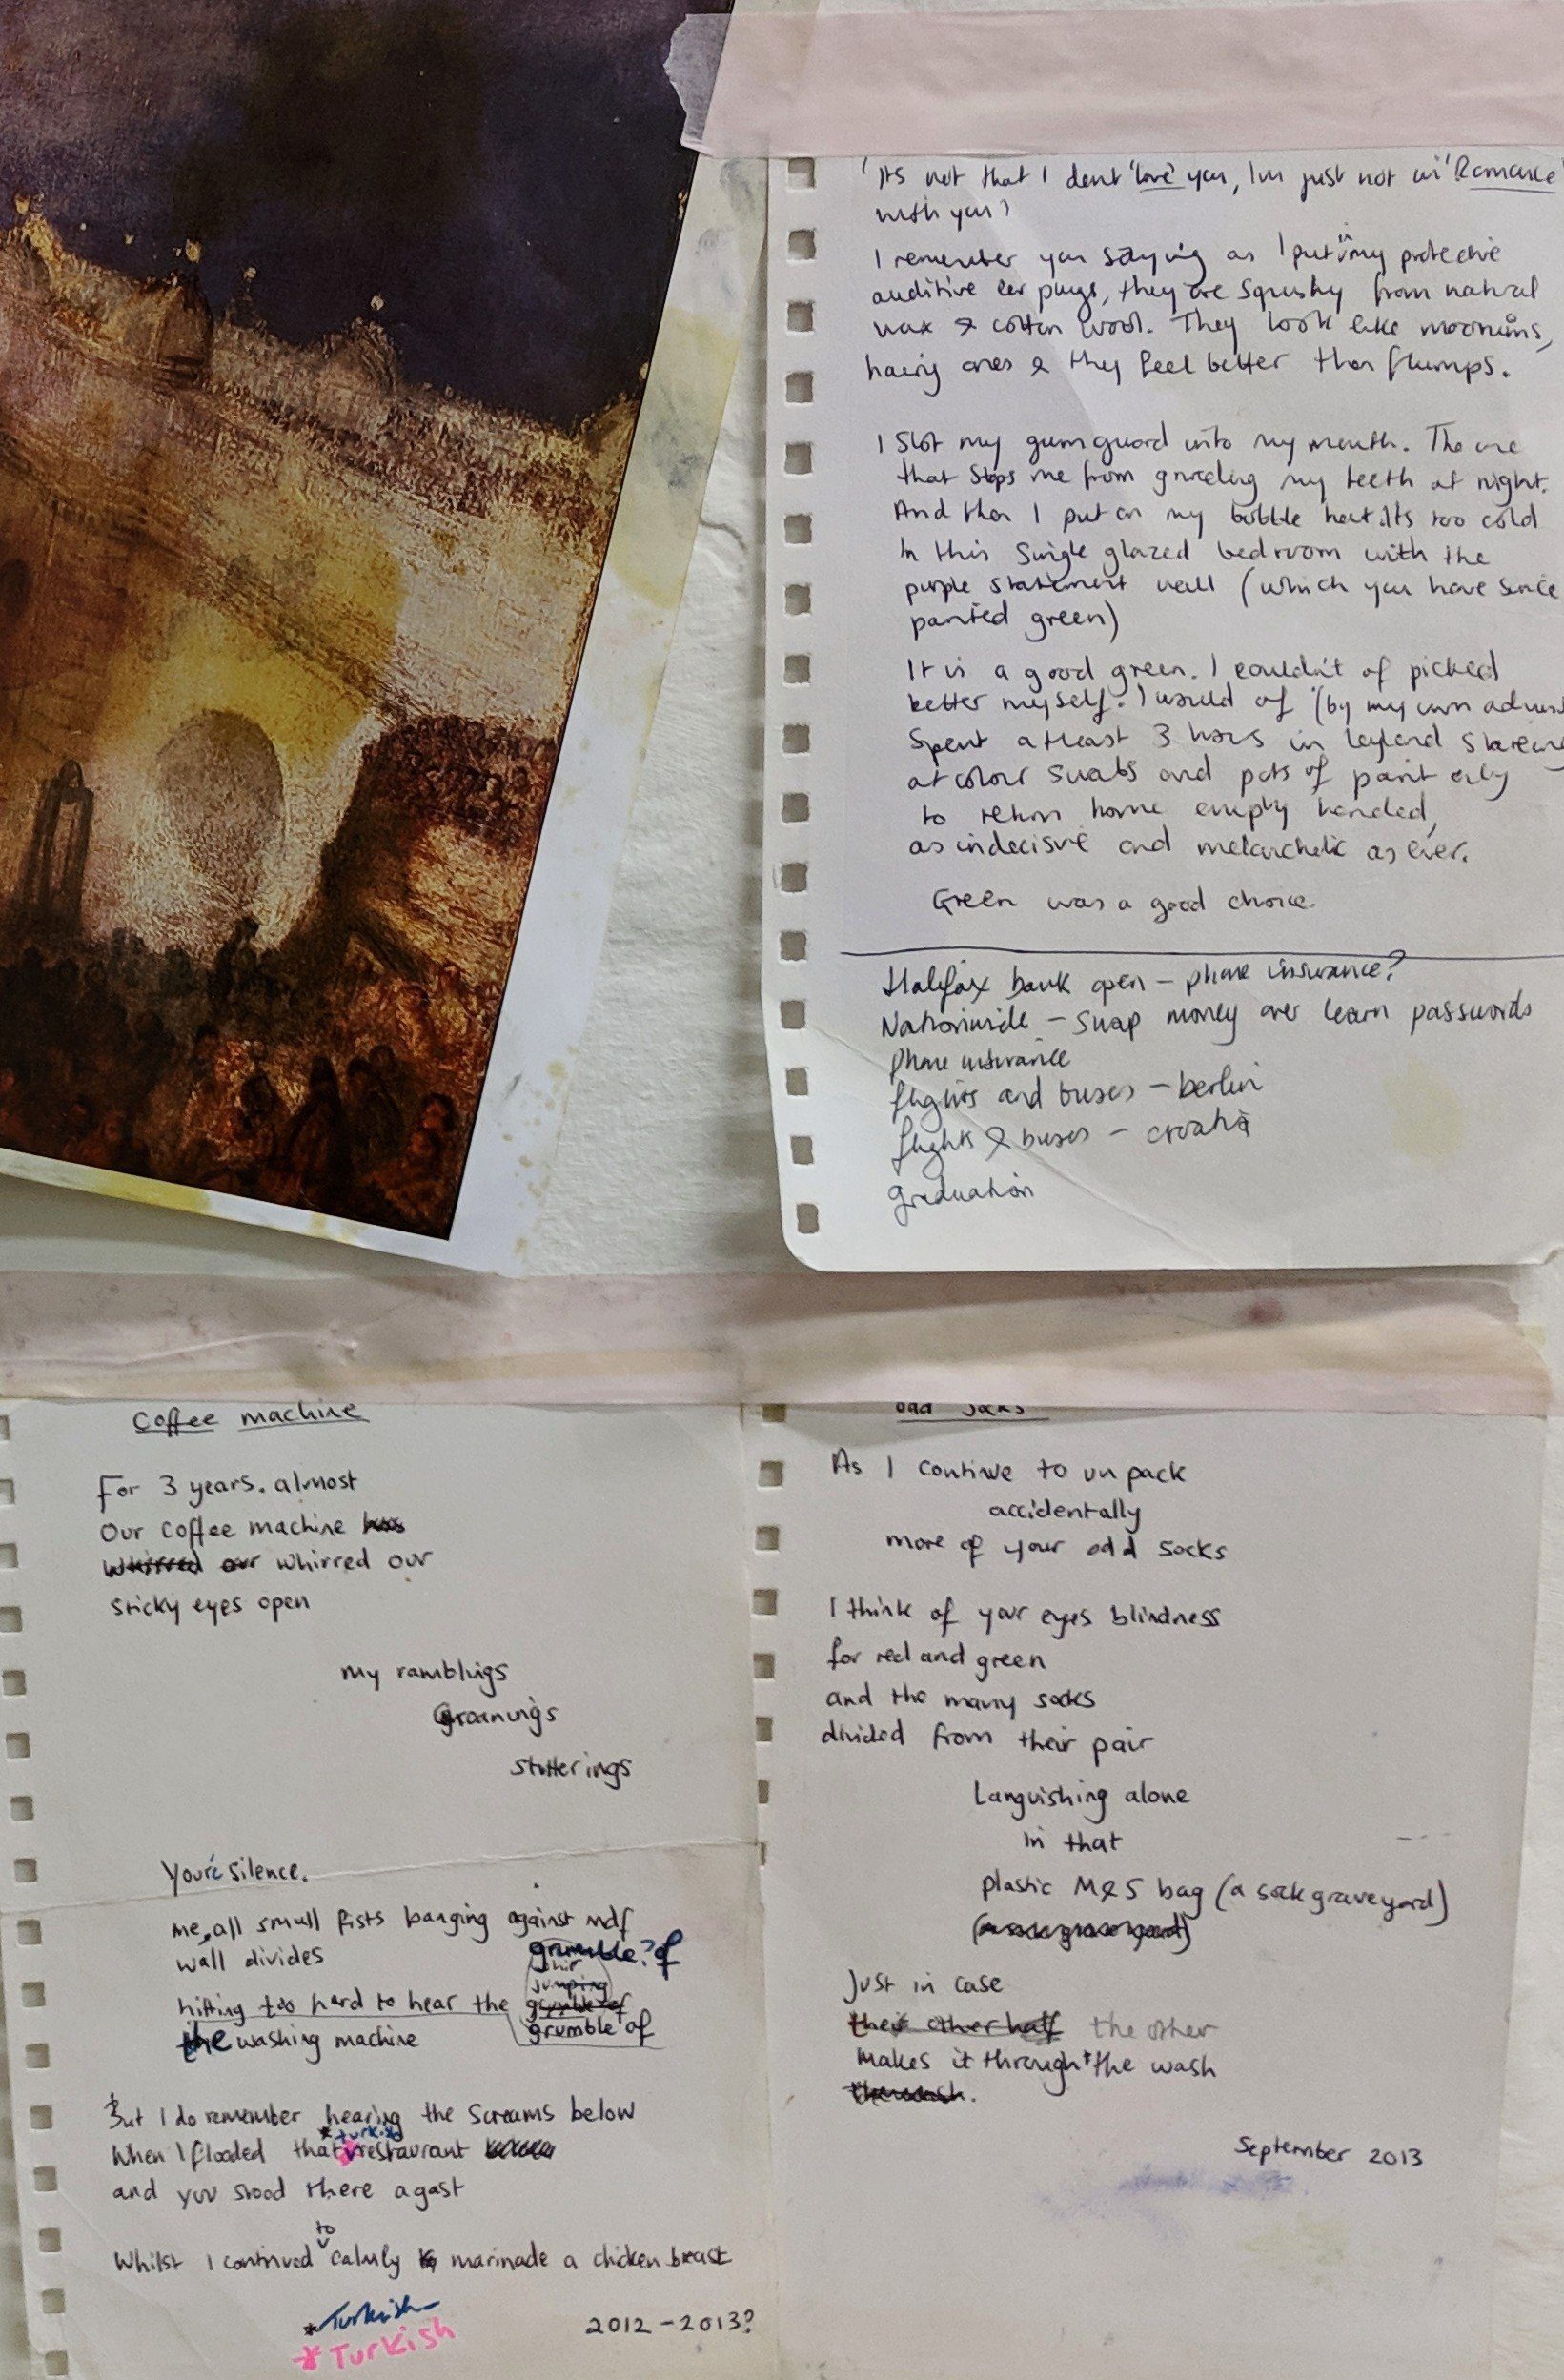 'Its not that I dont 'love' you, Im just not in 'Romance'
with you'
I remember you saying as I put in my protective
auditive ear plugs, they are squishy from natural
wax & cotton wool. They look like moomins,
hairy ones & they feel better than flumps.
I slot my gumguard into my mouth. The one
that stops me from grinding my teeth at night.
And then I put on my bobble hat. Its too cold
In this single glazed bedroom with the
purple statement wall (which you have since
painted green)
It is a good green. I couldn't of picked
better myself. I would of (by my own
spent atleast 3 hours in leyland stareing
at colour swabs and pots of paint only
to return home empty handed,
as indecisive and melancholic as ever.
Green was a good choice.
Halifax bank open – phone insurance?
Nationwide – swap money over learn passwords
phone insurance
flights and buses – berlin
flights & buses – croatia
graduation
Coffee machine
For 3 years. almost
Our coffee machine has
whirred our whirred our
sticky eyes open
my ramblings
Groanings
stutterings
You're silence.
me, all small fists banging against mdf
wall divides
grumble? of
whir
jumping
hitting too hard to hear the grumble of
grumble of
the washing machine
But I do remember hearing the screams below
*turkish
When I flooded that restaurant
and you stood there agast
to
Whilst I continued calmly to marinade a chicken breast
*Turkish
*Turkish
2012 – 2013?
odd socks
As I continue to unpack
accidentally
more of your odd socks
I think of your eyes blindness
for red and green
and the many socks
divided from their pair
Languishing alone
in that
plastic M&S bag (a sock graveyard)
(a sock graveyard)
Just in case
their other half the other
makes it through the wash
the wash.
September 2013